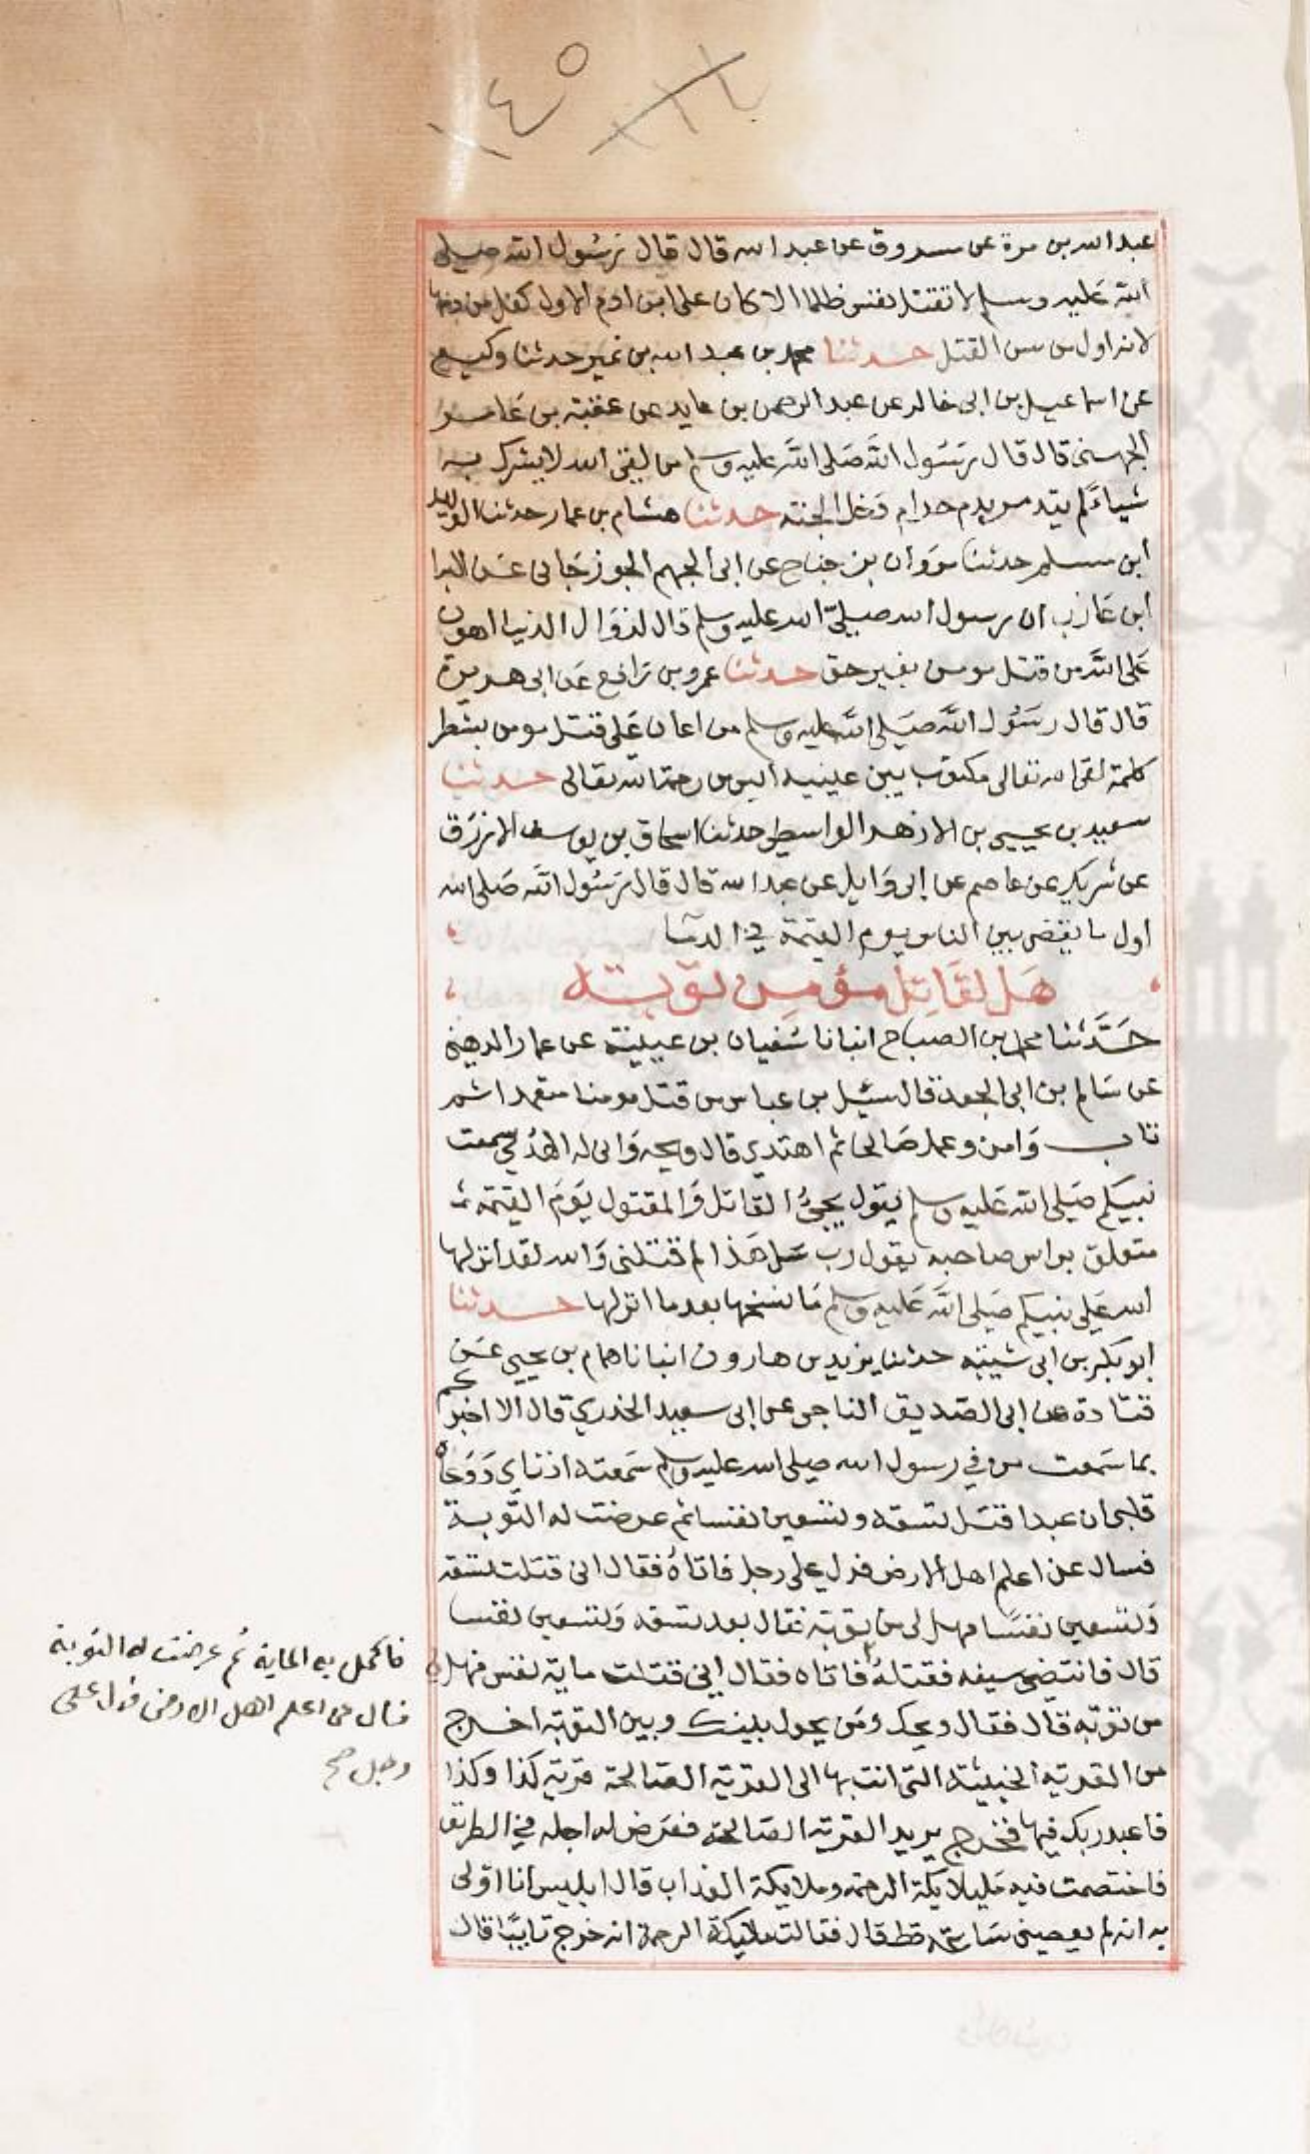 ١٤٥
عبد الله بن مرة عن مسروق عن عبد الله قال قال رسول الله صلى
الله عليه وسلم لا تقتل نفس ظلما الا كان على ابن ادم الاول كفل من دمها
لانه اول من سن القتل حدثنا محمد بن عبد الله بن نمير حدثنا وكيع
عن اسماعيل بن ابى خالد عن عبد الرحمن بن عايد عن عقبة بن عامر
الجهنى قال قال رسول الله صلى الله عليه وسلم من لقى الله لا يشرك به
شياء لم يتد مر بدم حرام دخل الجنة حدثنا هشام بن عمار حدثنا الوليد
ابن مسلم حدثنا مروان بن جناح عن ابى الجهم الجوزجانى عن البرا
ابن عازب ان رسول الله صلى الله عليه وسلم قال لزوال الدنيا اهون
على الله من قتل مومن بغير حق حدثنا عمرو بن رافع عن ابى هريرة
قال قال رسول الله صلى الله عليه وسلم من اعان على قتل مومن بشطر
كلمة لقى الله تعالى مكتوب بين عينيه ايس من رحمة الله تعالى حدثنا
سعيد بن يحيى بن الازهر الواسطى حدثنا اسحاق بن يوسف الازرق
عن شريك عن عاصم عن ابى وايل عن عبد الله قال قال رسول الله صلى الله
اول ما يقضى بين الناس يوم القيمة فى الدما
هَل لقَاتِل مؤمِن تَوبَة
حَدَّثنا محمد بن الصباح انبانا سُفيان بن عيينة عن عمار الدهنى
عن سَالم بن ابى الجعد قال سئل بن عباس من قتل مومنا متعمدا ثم
تاب وَامن وعمل صَالحا ثم اهتدى قال ويحه وَانى له الهُدى سمعت
نبيكم صَلى الله عَليه وسلم يقول يجئُ القاتل وَالمقتول يَومَ القيمة
متعلق براس صاحبه يقول رب سَل هَذا لم قتلنى وَالله لقد انزلها
الله عَلى نبيكم صَلى الله عَليه وسلم مَا نسخها بعد ما انزلها حدثنا
ابو بكر بن ابى شيبَة حدثنا يزيد بن هارون انبانا همام بن يحيى عَن
قتادة عن ابى الصديق الناجى عن ابى سعيد الخدري قال الا اخبركم
بما سَمعت من في رسول الله صلى الله عليه وسلم سَمعته اذناي وَوَعاه
قلبى ان عبدا قتل تسعَة وتسعين نفسا ثم عرضت له التوبة
فسال عن اعلم اهل الارض فدل على رجل فاتاهُ فقال انى قتلت تسعة
وَتسعين نفسًا فهل لى من توبة فقال بعد تسعة وَتسعين نفسا
قال فانتضى سيفه فقتلهُ فاتاه فقال إنى قتلت ماية نفس فهل لى
من توبة قال فقال ويحك ومَن يحول بينك وبين التوبة اخرج
من القرية الخبيثة التى انت بها الى القرية الصَالحة قرية كذا وكذا
فاعبد ربك فيها فخرج يريد القرية الصَالحة فعَرض له اجله في الطريق
فاختصمت فيه مليلايكة الرحمة وملايكة العذاب قال ابليس انا اولى
به انه لم يعصينى سَاعة قط قال فقالت ملايكة الرحمة انه خرج تايبًا قال
فاكمل به الماية ثم عرضت له التوبة
فسال عن اعلم اهل الارض فدل على
رجل صح